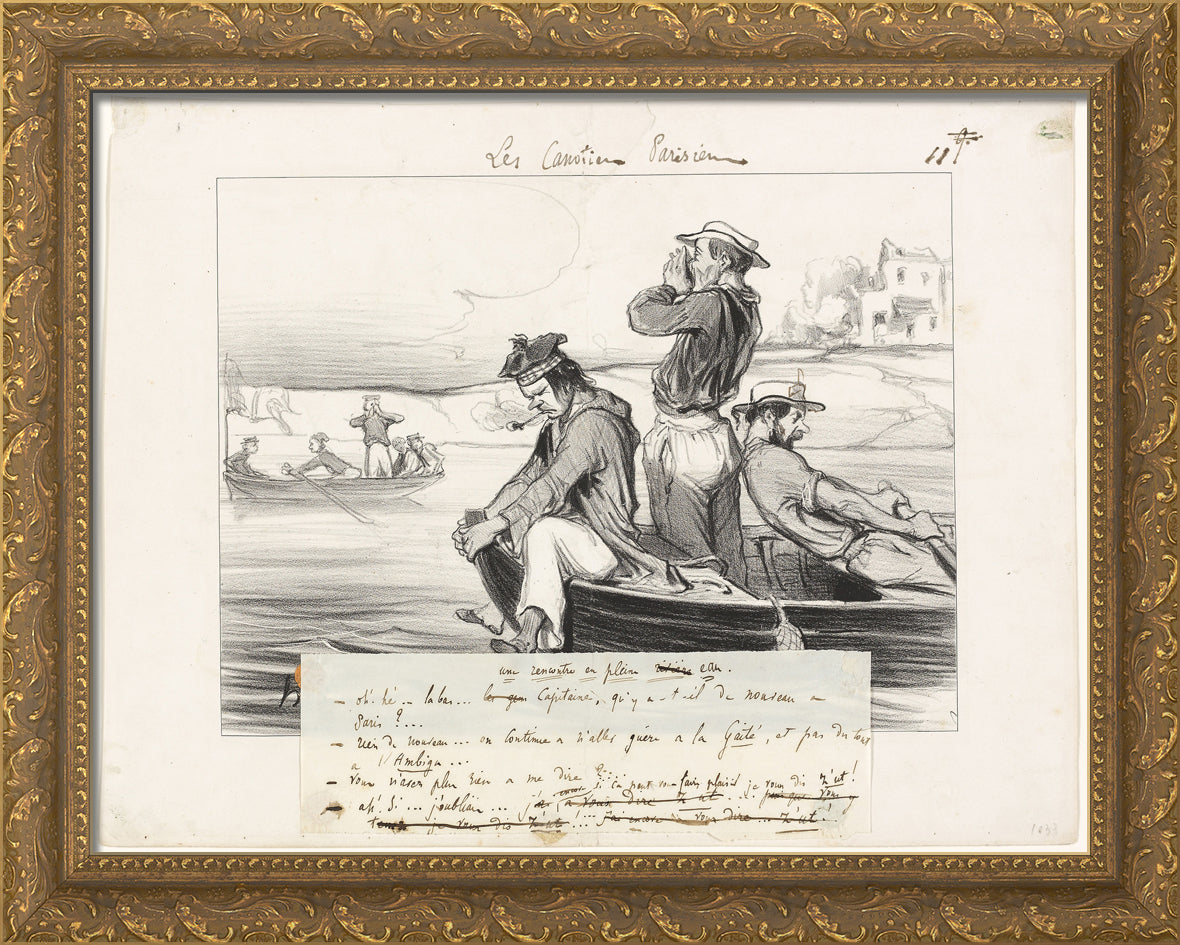 Les Canotiers Parisiens
11
une rencontre en plein rivière eau.
— oh! hé... labas... Capitaine, qu'y a-t-il de nouveau a
Paris ?...
— rien de nouveau... on continue a n'aller guère a la Gaité, et pas du tout
a l'Ambigu...
— vous n'avez plus rien a me dire ?...
— ah! Si... j'oubliais... si ça peut vous faire plaisir je vous dis z'ut!
encore a vous dire z'ut...
je vous dis z'ut!... j'ai encore a vous dire... z'ut!
1033